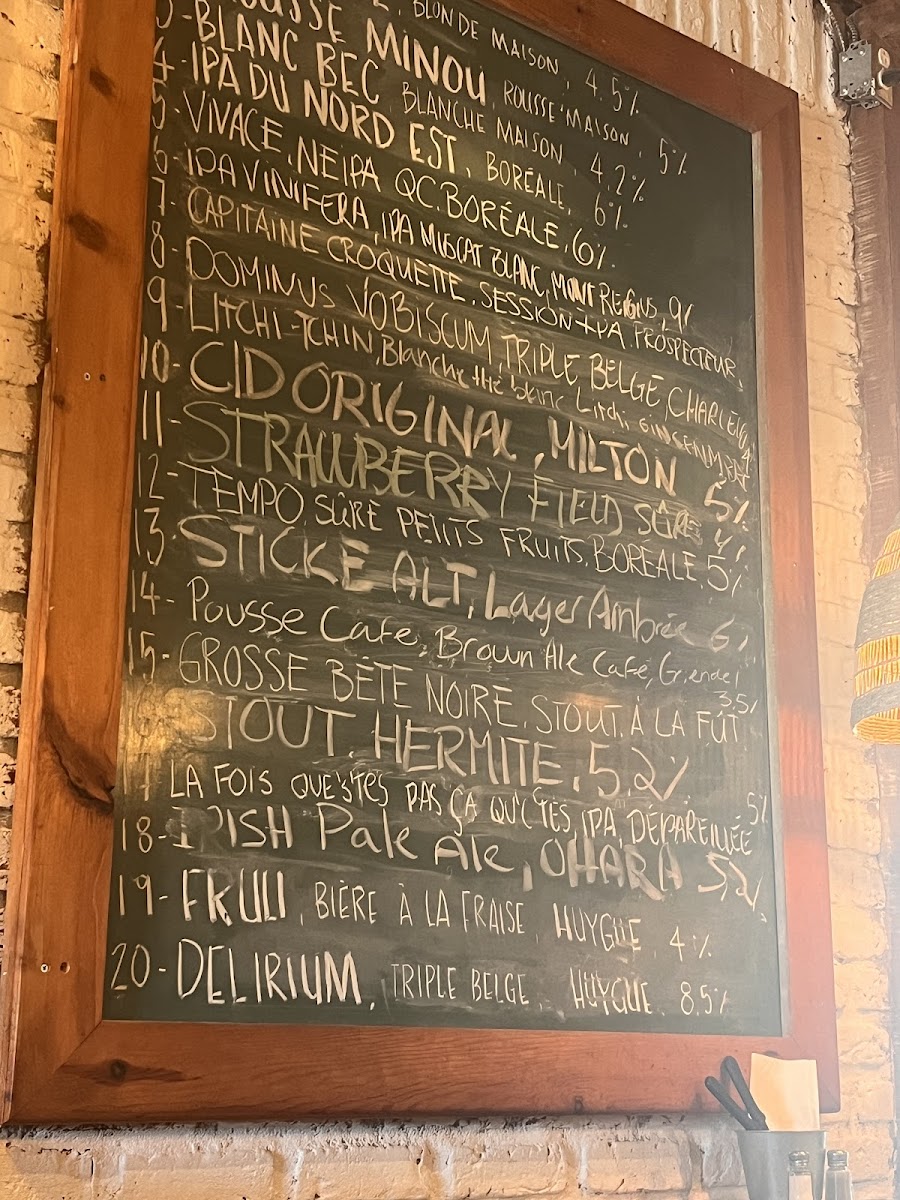 BLONDE MAISON, 4,5%
ROUSSE MINOU, ROUSSE MAISON, 5%
3- BLANC BEC, BLANCHE MAISON, 4.2%
4- IPA DU NORD EST, BORÉALE, 6%
5- VIVACE, NEIPA QC, BORÉALE, 6%
6- IPA VINIFERA, IPA MUSCAT BLANC, MONT REIGNS, 9%
7- CAPITAINE CROQUETTE, SESSION IPA, PROSPECTEUR,
8- DOMINUS VOBISCUM, TRIPLE, BELGE, CHARLEV
9- LITCHI-TCHIN, Blanche thé blanc Litchi GINGENMBRE
10- CID ORIGINAL, MILTON 5%
11- STRAWBERRY FIELD SÛRE 4%
12- TEMPO, SÛRE PETITS FRUITS, BORÉALE, 5%
13- STICKE ALT, Lager Ambrée 6%
14- Pousse Café, Brown Ale Café, Grendel 3,5%
15- GROSSE BÊTE NOIRE, STOUT, À LA FÛT
STOUT, HERMITE, 5,2%
17 LA FOIS QUE S'TES PAS ÇA QU'C'TES, IPA, DÉPAREILLÉE 5%
18- IRISH Pale Ale, OHARA 5,2%
19- FRULI, BIÈRE À LA FRAISE, HUYGUE, 4%
20- DELIRIUM, TRIPLE BELGE, HUYGUE, 8.5%